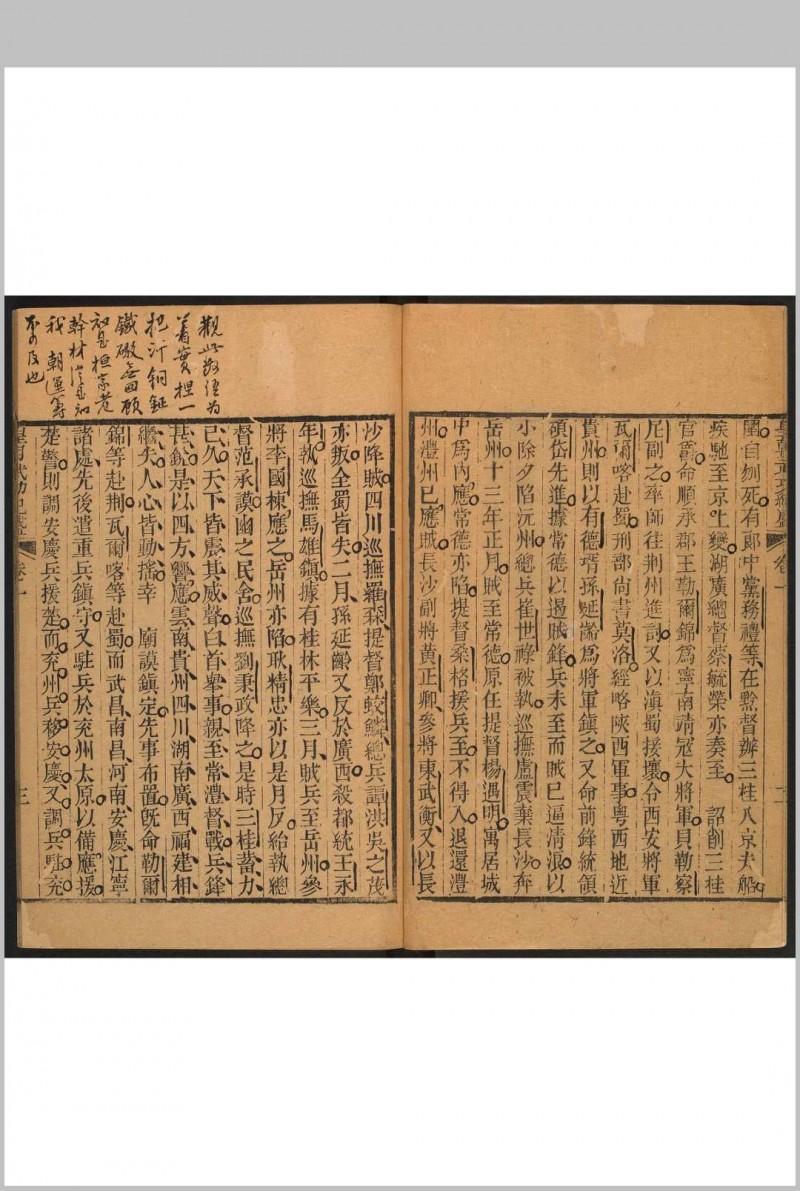 圍自刎死有郎中黨務禮等在黔督辦三桂入京夫船
疾馳至京上變湖廣總督蔡毓榮亦奏至 詔削三桂
官爵命順承郡王勒爾錦爲寧南靖寇大將軍貝勒察
尼副之率師往荆州進討又以滇蜀接壤令西安將軍
瓦爾喀赴蜀刑部尚書莫洛經略陝西軍事粤西地近
貴州則以有德壻孫延齡爲將軍鎮之又命前鋒統領
碩岱先進據常德以遏賊鋒兵未至而賊已逼淸浪以
小除夕陷沅州總兵崔世祿被執巡撫盧震棄長沙奔
岳州十三年正月賊至常德原任提督楊遇明寓居城
中爲內應常德亦陷提督桑格援兵至不得入退還澧
州澧州已應賊長沙副將黃正卿參將東武衡又以長
沙降賊四川巡撫羅森提督鄭蛟麟總兵譚洪吳之茂
亦叛全蜀皆失二月孫延齡又反於廣西殺都統王永
年執巡撫馬雄鎮據有桂林平樂三月賊兵至岳州參
將李國棟應之岳州亦陷耿精忠亦以是月反紿執總
督范承謨幽之民舍巡撫劉秉政降之是時三桂蓄力
已久天下皆震其威聲白首舉事親至常澧督戰兵鋒
甚銳是以四方響應雲南貴州四川湖南廣西福建相
繼失人心皆動搖幸 廟謨鎮定先事布置旣命勒爾
錦等赴荆瓦爾喀等赴蜀而武昌南昌河南安慶江寧
諸處先後遣重兵鎮守又駐兵於兖州太原以備應援
楚警則調安慶兵援楚而兖州兵移安慶又調兵駐兖
卷一
三
觀此
着實
銅鉦
鐵
幹材
我 朝運籌
不可及也